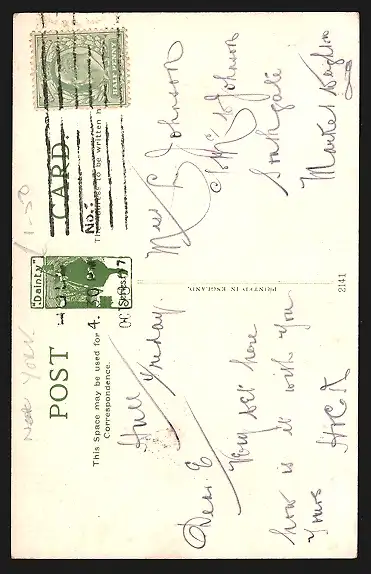 POST CARD.
"Dainty"
Series.
No.
This Space may be used for
Correspondence.
The Address to be written h
HALFPENNY
HULL
4. 30 PM
OC
7
Near York
1-50
Hull
Friday.
Dear E
Very wet here
how is it with you
Yours H
Miss E Johnson
C/o Mrs Johnson
Southgate
Market Weighton
PRINTED IN ENGLAND.
2141